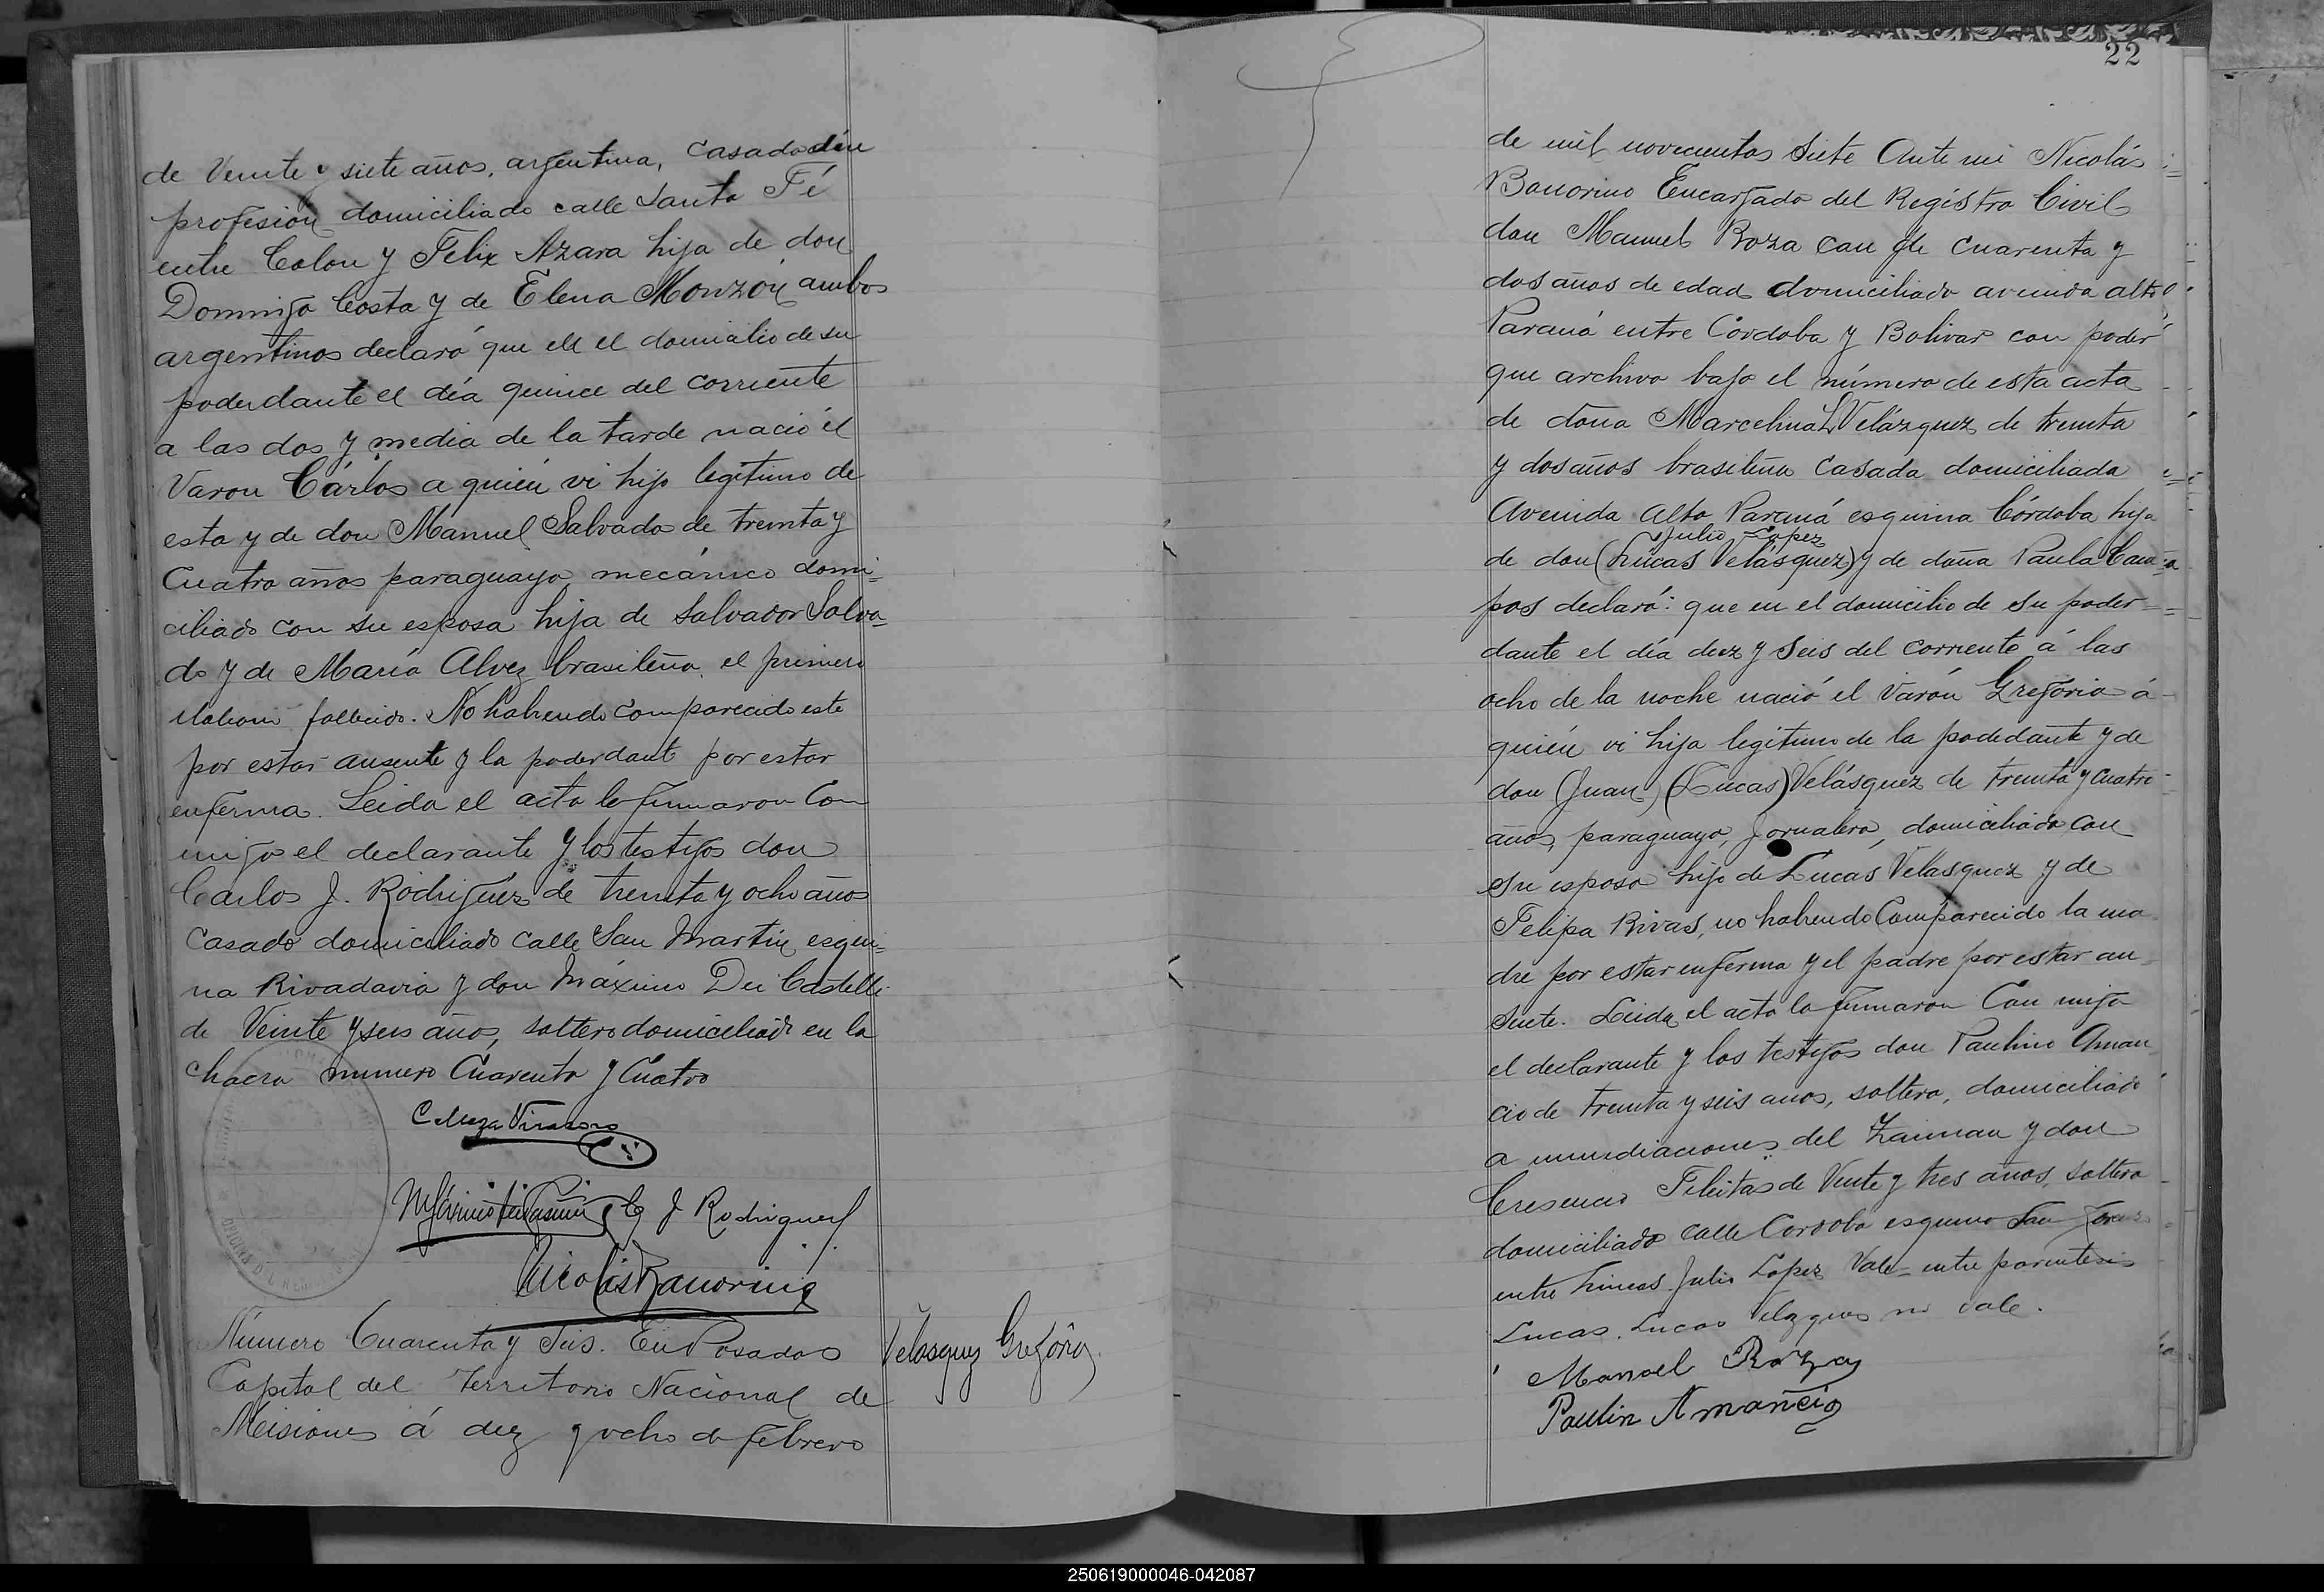 de Veinte y siete años, argentina, casada sin
profesión domiciliado calle Santa Fé
entre Colon y Felix Azara hija de don
Domingo Costa y de Elena Monzón ambos
argentinos declaró que en el domicilio de su
poderdante el día quince del corriente
a las dos y media de la tarde nació el
Varon Cárlos a quién vi hijo legítimo de
esta y de don Manuel Salvado de treinta y
Cuatro años paraguayo mecánico domi=
ciliado con su esposa hijo de Salvador Salva=
do y de María Alvez brasileña el primero
italiano fallecido. No habiendo comparecido este
por estar ausente y la poderdante por estar
enferma. Leida el acta la firmaron Con
migo el declarante y los testigos don
Carlos J. Rodriguez de treinta y ocho años
casado domiciliado calle San Martin esqui=
na Rivadavia y don Máximo Dei Castelli
de Veinte y seis años, soltero domiciliado en la
chacra numero Cuarenta y Cuatro
C J Rodriguez
Nicolás Bonorino
Número Cuarenta y Seis. En Posadas
Capital del Territorio Nacional de
Misiones á diez y ocho de febrero
Velasquez Gregório
22
de mil novecientos siete Ante mi Nicolás
Bonorino Encargado del Registro Civil
don Manuel Roza con de Cuarenta y
dos años de edad domiciliado avenida alto
Paraná entre Córdoba y Bolivar con poder
que archivo bajo el número de esta acta
de doña Marcelina L Velázquez de treinta
y dos años brasileña casada domiciliada
Avenida Alto Paraná esquina Córdoba hija
Julio Lopez
de don (Lucas Velásquez) y de doña Paula Cam=
pos declaró: que en el domicilio de su poder=
dante el día diez y seis del corriente á las
ocho de la noche nació el Varón Gregorio á
quién vi hijo legítimo de la podedante y de
don (Juan) (Lucas) Velásquez de treinta y Cuatro
años, paraguayo, jornalero, domiciliado con
su esposa hijo de Lucas Velasquez y de
Felipa Rivas, no habiendo Comparecido la ma
dre por estar enferma y el padre por estar au=
sente. Leida el acta la firmaron Con migo
el declarante y los testigos don Paulino Aman
cio de treinta y seis años, soltero, domiciliado
a inmediaciones del Zaiman y don
Cresencio Feleitas de Veinte y tres años, soltero
domiciliado calle Cordoba esquina San Lorenzo
entre lineas Julio López Vale = entre parentesis
Lucas. Lucas Velazques no vale.
Manoel Roza
Paulin Amancio
250619000046-042087